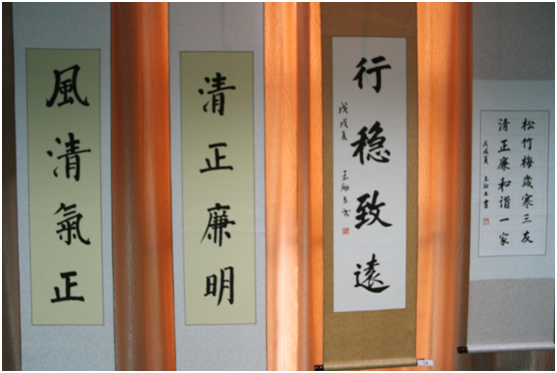 風清氣正
清正廉明
行稳致遠
戊戌夏
松竹梅歲寒三友
清正廉和谐一家
戊戌夏